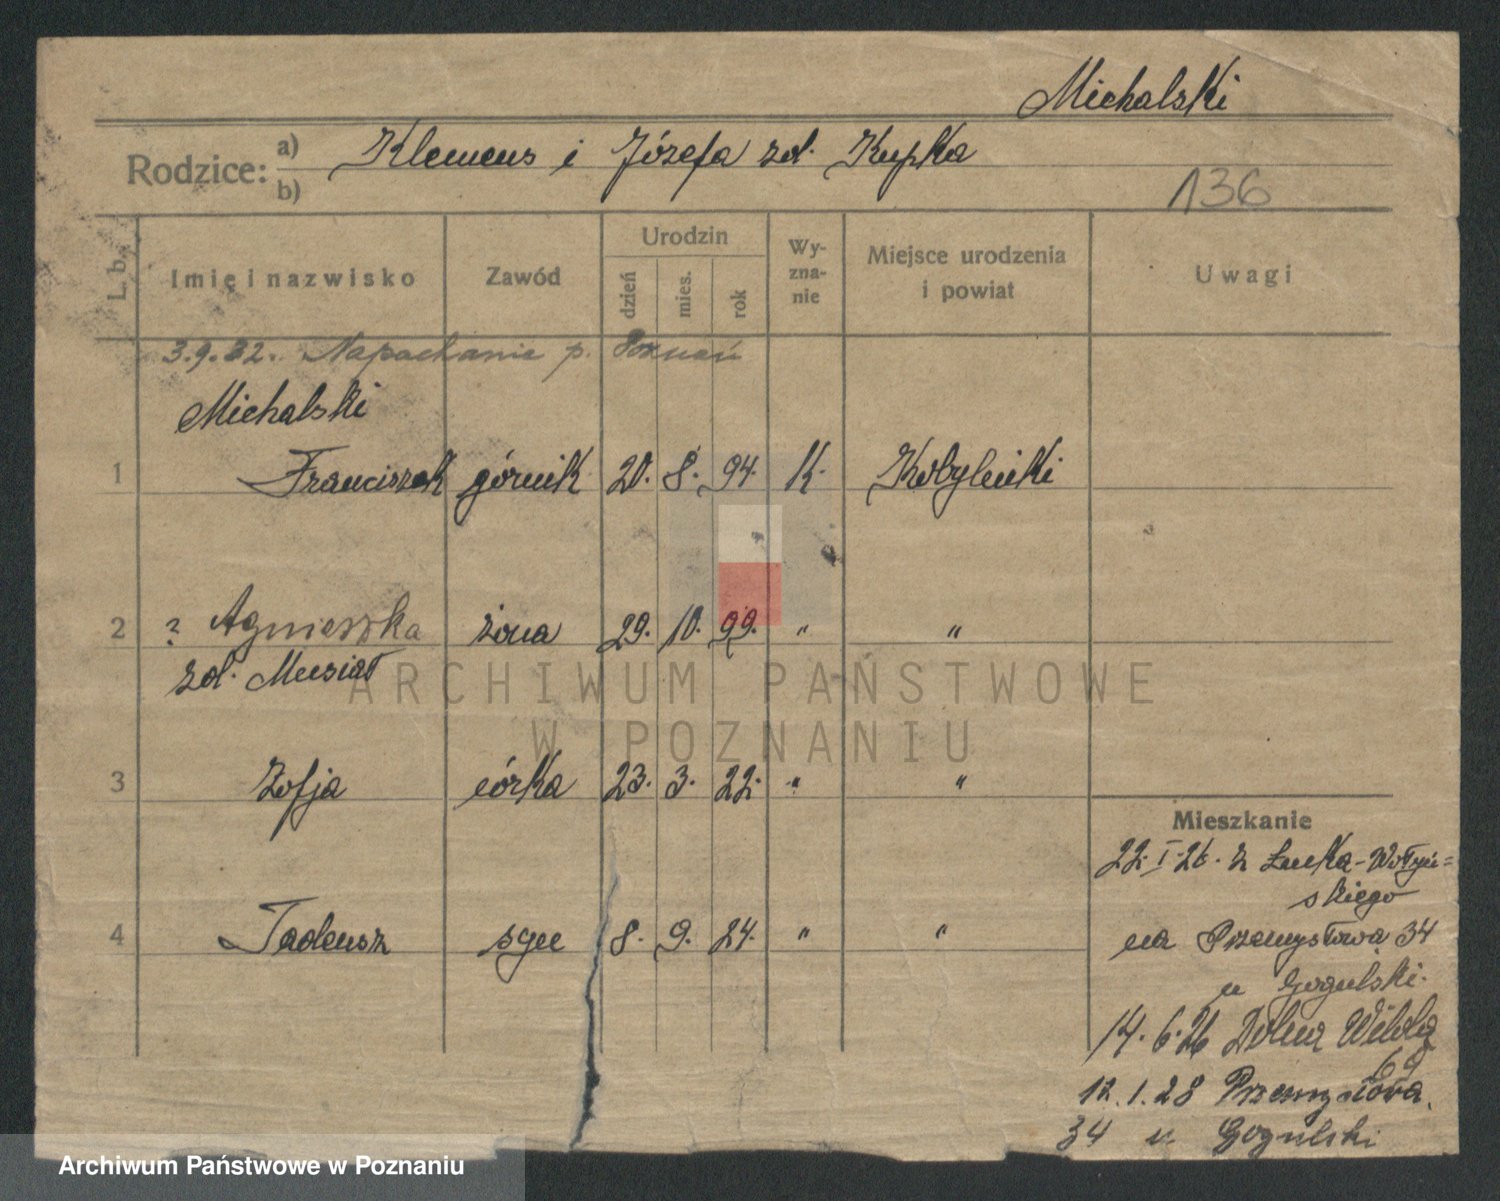 Michalski
Rodzice: a) Klemens i Józefa zd. Kupka
b)
136
L. b. Imię i nazwisko Zawód Urodzin dzień mies. rok Wy-zna-nie Miejsce urodzenia i powiat Uwagi
3.9.32. Napachanie p. Poznań
Michalski
1 Franciszek górnik 20. 8. 94. K. Kobylniki
2 ? Agnieszka żona 29. 10. 99. " "
zd. Musiał
3 Zofja córka 23. 3. 22. " "
Mieszkanie
22.I.26. z Łucka-Wołyń=
skiego
4 Tadeusz syn 8. 9. 24. " "
na Przemysłową 34
u Gogulski.
14.6.26 Dolna Wilda
69
12.1.28 Przemysłowa.
34 u Gogulski
ARCHIWUM PAŃSTWOWE
W POZNANIU
Archiwum Państwowe w Poznaniu